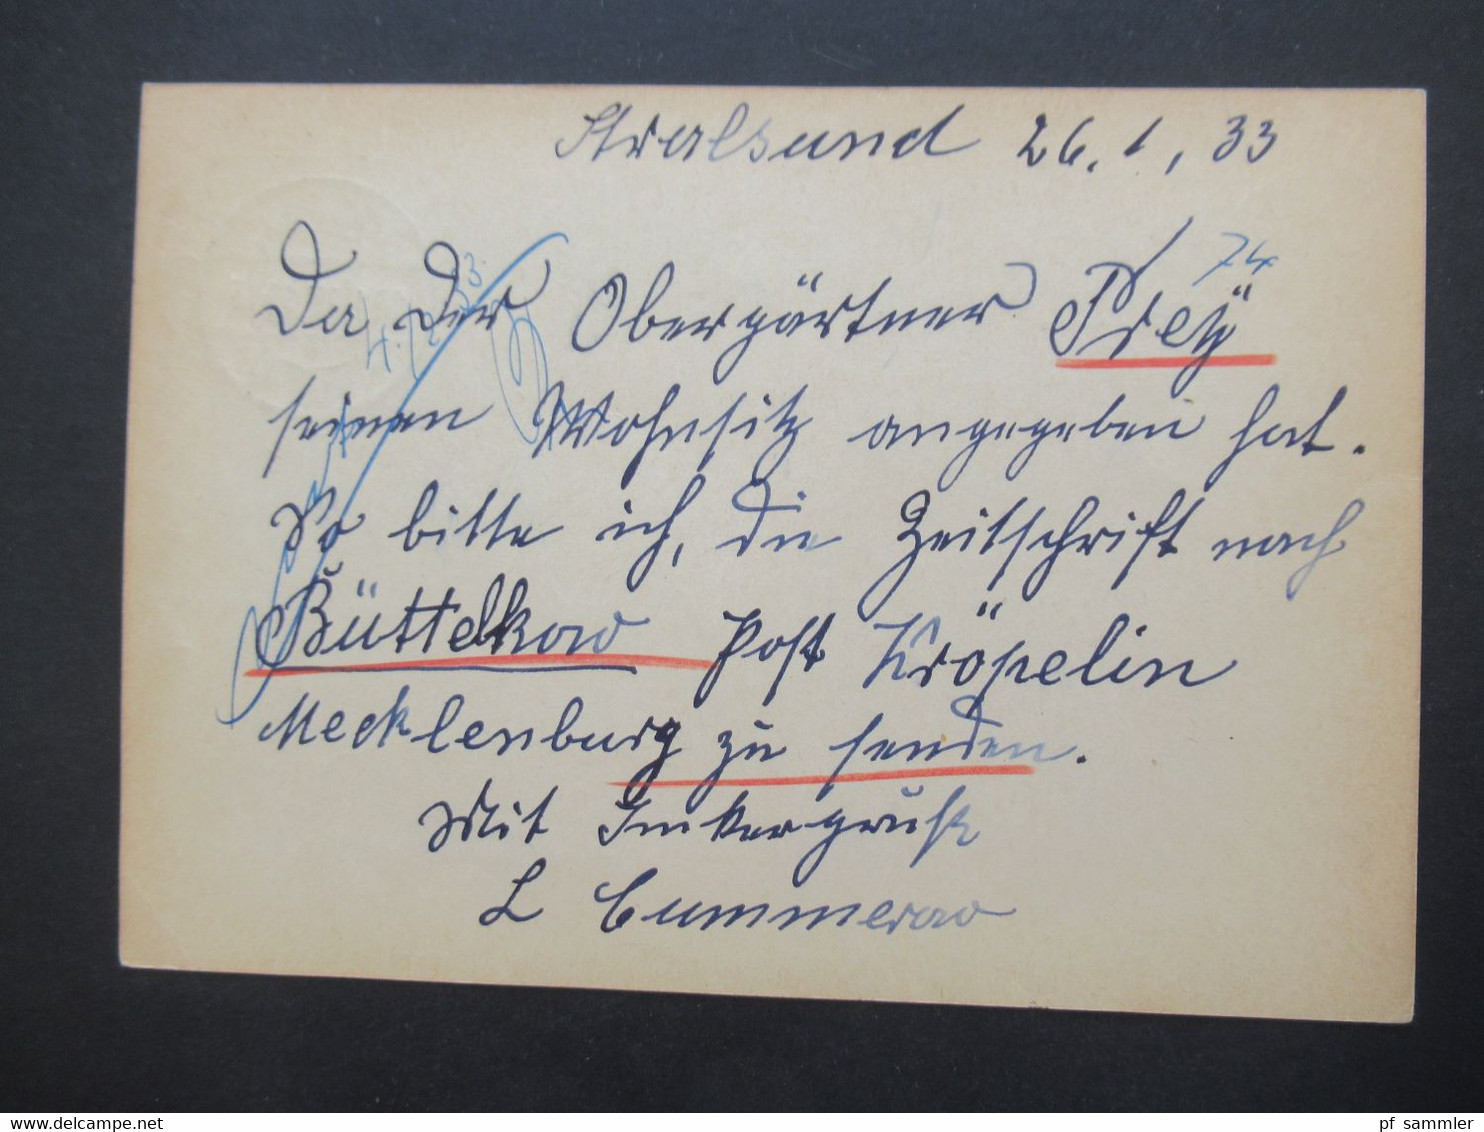 Stralsund 26. 1, 33
74
Da der Obergärtner Prey
4./2 33
seinen Wohnsitz angegeben hat.
So bitte ich, die Zeitschrift nach
Büttelkow Post Kröpelin
Mecklenburg zu senden.
Mit Imkergruß
L Cummerow
www.delcampe.net
pf_sammler